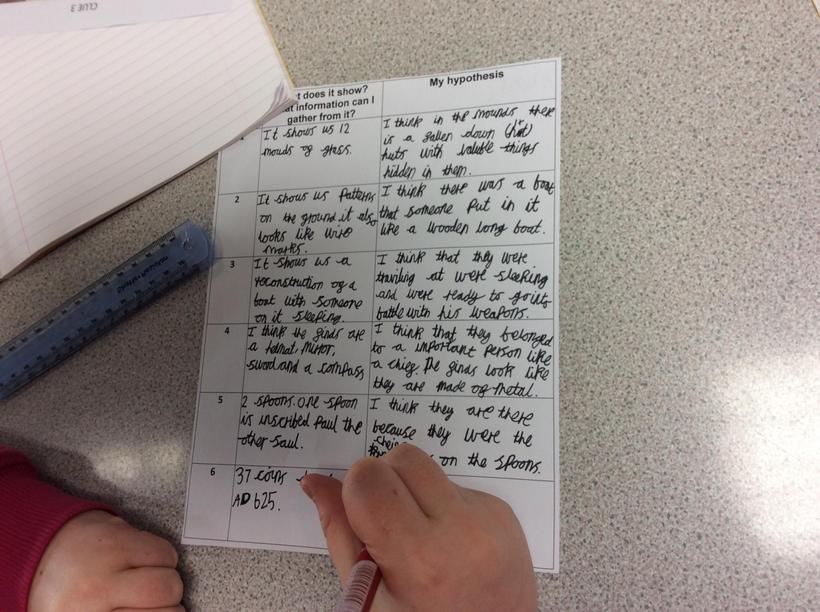 CLUE 3
t does it show?
at information can I
gather from it?
My hypothesis
It shows us 12
mouds of grass.
I think in the mounds there
is a fallen down (hut)
huts with valuble things
hidden in them.
2
It shows us Patterns
on the ground it also
looks like wire
marks.
I think there was a boat
that someone Put in it
like a wooden long boat.
3
It shows us a
reconstruction of a
boat with someone
on it sleeping.
I think that they were
traviling at were sleeping
and were ready to go into
battle with his weapons.
4
I think the finds are
a helmat, mirror,
sword and a compass
I think that they belonged
to a important Person like
a chief. The finds look like
they are made of metal.
5
2 spoons. one spoon
is inscribed Paul the
other Saul.
I think they are there
because they were the
on the spoons.
6
37 coins
AD 625.